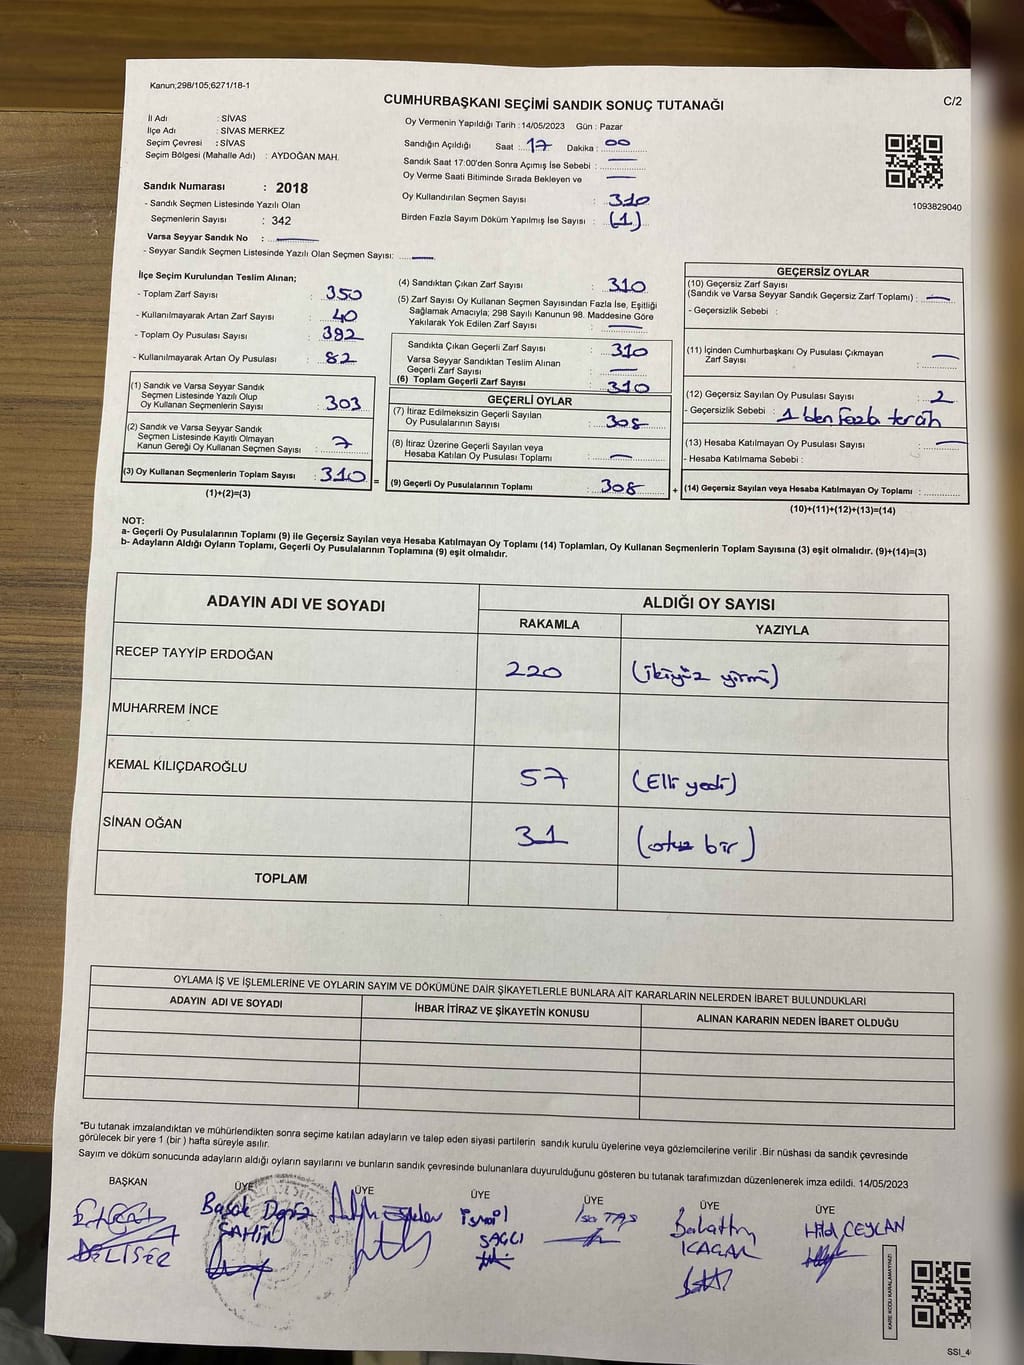 Kanun;298/105;6271/18-1
CUMHURBAŞKANI SEÇİMİ SANDIK SONUÇ TUTANAĞI
C/2
İl Adı : SİVAS
İlçe Adı : SİVAS MERKEZ
Seçim Çevresi : SİVAS
Seçim Bölgesi (Mahalle Adı) : AYDOĞAN MAH.
Sandık Numarası : 2018
- Sandık Seçmen Listesinde Yazılı Olan
Seçmenlerin Sayısı : 342
Varsa Seyyar Sandık No : —
- Seyyar Sandık Seçmen Listesinde Yazılı Olan Seçmen Sayısı: —
Oy Vermenin Yapıldığı Tarih : 14/05/2023 Gün : Pazar
Sandığın Açıldığı Saat : 17 Dakika : 00
Sandık Saat 17:00'den Sonra Açımış İse Sebebi : —
Oy Verme Saati Bitiminde Sırada Bekleyen ve —
Oy Kullandırılan Seçmen Sayısı : 310
Birden Fazla Sayım Döküm Yapılmış İse Sayısı : (1)
1093829040
İlçe Seçim Kurulundan Teslim Alınan;
- Toplam Zarf Sayısı : 350
- Kullanılmayarak Artan Zarf Sayısı : 40
- Toplam Oy Pusulası Sayısı : 392
- Kullanılmayarak Artan Oy Pusulası : 82
(1) Sandık ve Varsa Seyyar Sandık
Seçmen Listesinde Yazılı Olup
Oy Kullanan Seçmenlerin Sayısı : 303
(2) Sandık ve Varsa Seyyar Sandık
Seçmen Listesinde Kayıtlı Olmayan
Kanun Gereği Oy Kullanan Seçmen Sayısı : 7
(3) Oy Kullanan Seçmenlerin Toplam Sayısı : 310 =
(1)+(2)=(3)
(4) Sandıktan Çıkan Zarf Sayısı : 310
(5) Zarf Sayısı Oy Kullanan Seçmen Sayısından Fazla İse, Eşitliği
Sağlamak Amacıyla; 298 Sayılı Kanunun 98. Maddesine Göre
Yakılarak Yok Edilen Zarf Sayısı : —
Sandıkta Çıkan Geçerli Zarf Sayısı : 310
Varsa Seyyar Sandıktan Teslim Alınan
Geçerli Zarf Sayısı : —
(6) Toplam Geçerli Zarf Sayısı : 310
GEÇERLİ OYLAR
(7) İtiraz Edilmeksizin Geçerli Sayılan
Oy Pusulalarının Sayısı : 308
(8) İtiraz Üzerine Geçerli Sayılan veya
Hesaba Katılan Oy Pusulası Toplamı : —
(9) Geçerli Oy Pusulalarının Toplamı : 308 +
GEÇERSİZ OYLAR
(10) Geçersiz Zarf Sayısı
(Sandık ve Varsa Seyyar Sandık Geçersiz Zarf Toplamı) : —
- Geçersizlik Sebebi :
(11) İçinden Cumhurbaşkanı Oy Pusulası Çıkmayan
Zarf Sayısı : —
(12) Geçersiz Sayılan Oy Pusulası Sayısı : 2
- Geçersizlik Sebebi : 1 den fazla tercih
(13) Hesaba Katılmayan Oy Pusulası Sayısı : —
- Hesaba Katılmama Sebebi :
(14) Geçersiz Sayılan veya Hesaba Katılmayan Oy Toplamı :
(10)+(11)+(12)+(13)=(14)
NOT:
a- Geçerli Oy Pusulalarının Toplamı (9) ile Geçersiz Sayılan veya Hesaba Katılmayan Oy Toplamı (14) Toplamları, Oy Kullanan Seçmenlerin Toplam Sayısına (3) eşit olmalıdır. (9)+(14)=(3)
b- Adayların Aldığı Oyların Toplamı, Geçerli Oy Pusulalarının Toplamına (9) eşit olmalıdır.
ADAYIN ADI VE SOYADI
ALDIĞI OY SAYISI
RAKAMLA YAZIYLA
RECEP TAYYİP ERDOĞAN 220 (ikiyüz yirmi)
MUHARREM İNCE
KEMAL KILIÇDAROĞLU 57 (Elli yedi)
SİNAN OĞAN 31 (otuz bir)
TOPLAM
OYLAMA İŞ VE İŞLEMLERİNE VE OYLARIN SAYIM VE DÖKÜMÜNE DAİR ŞİKAYETLERLE BUNLARA AİT KARARLARIN NELERDEN İBARET BULUNDUKLARI
ADAYIN ADI VE SOYADI İHBAR İTİRAZ VE ŞİKAYETİN KONUSU ALINAN KARARIN NEDEN İBARET OLDUĞU
*Bu tutanak imzalandıktan ve mühürlendikten sonra seçime katılan adayların ve talep eden siyasi partilerin sandık kurulu üyelerine veya gözlemcilerine verilir .Bir nüshası da sandık çevresinde
görülecek bir yere 1 (bir ) hafta süreyle asılır.
Sayım ve döküm sonucunda adayların aldığı oyların sayılarını ve bunların sandık çevresinde bulunanlara duyurulduğunu gösteren bu tutanak tarafımızdan düzenlenerek imza edildi. 14/05/2023
BAŞKAN ÜYE ÜYE ÜYE ÜYE ÜYE ÜYE
DELİSER
Başak Deniz
ŞAHİN
İsmail
SAĞCI
İsa TAŞ
KAÇAR
CEYLAN
KARE KODU KARALAMAYINIZ!